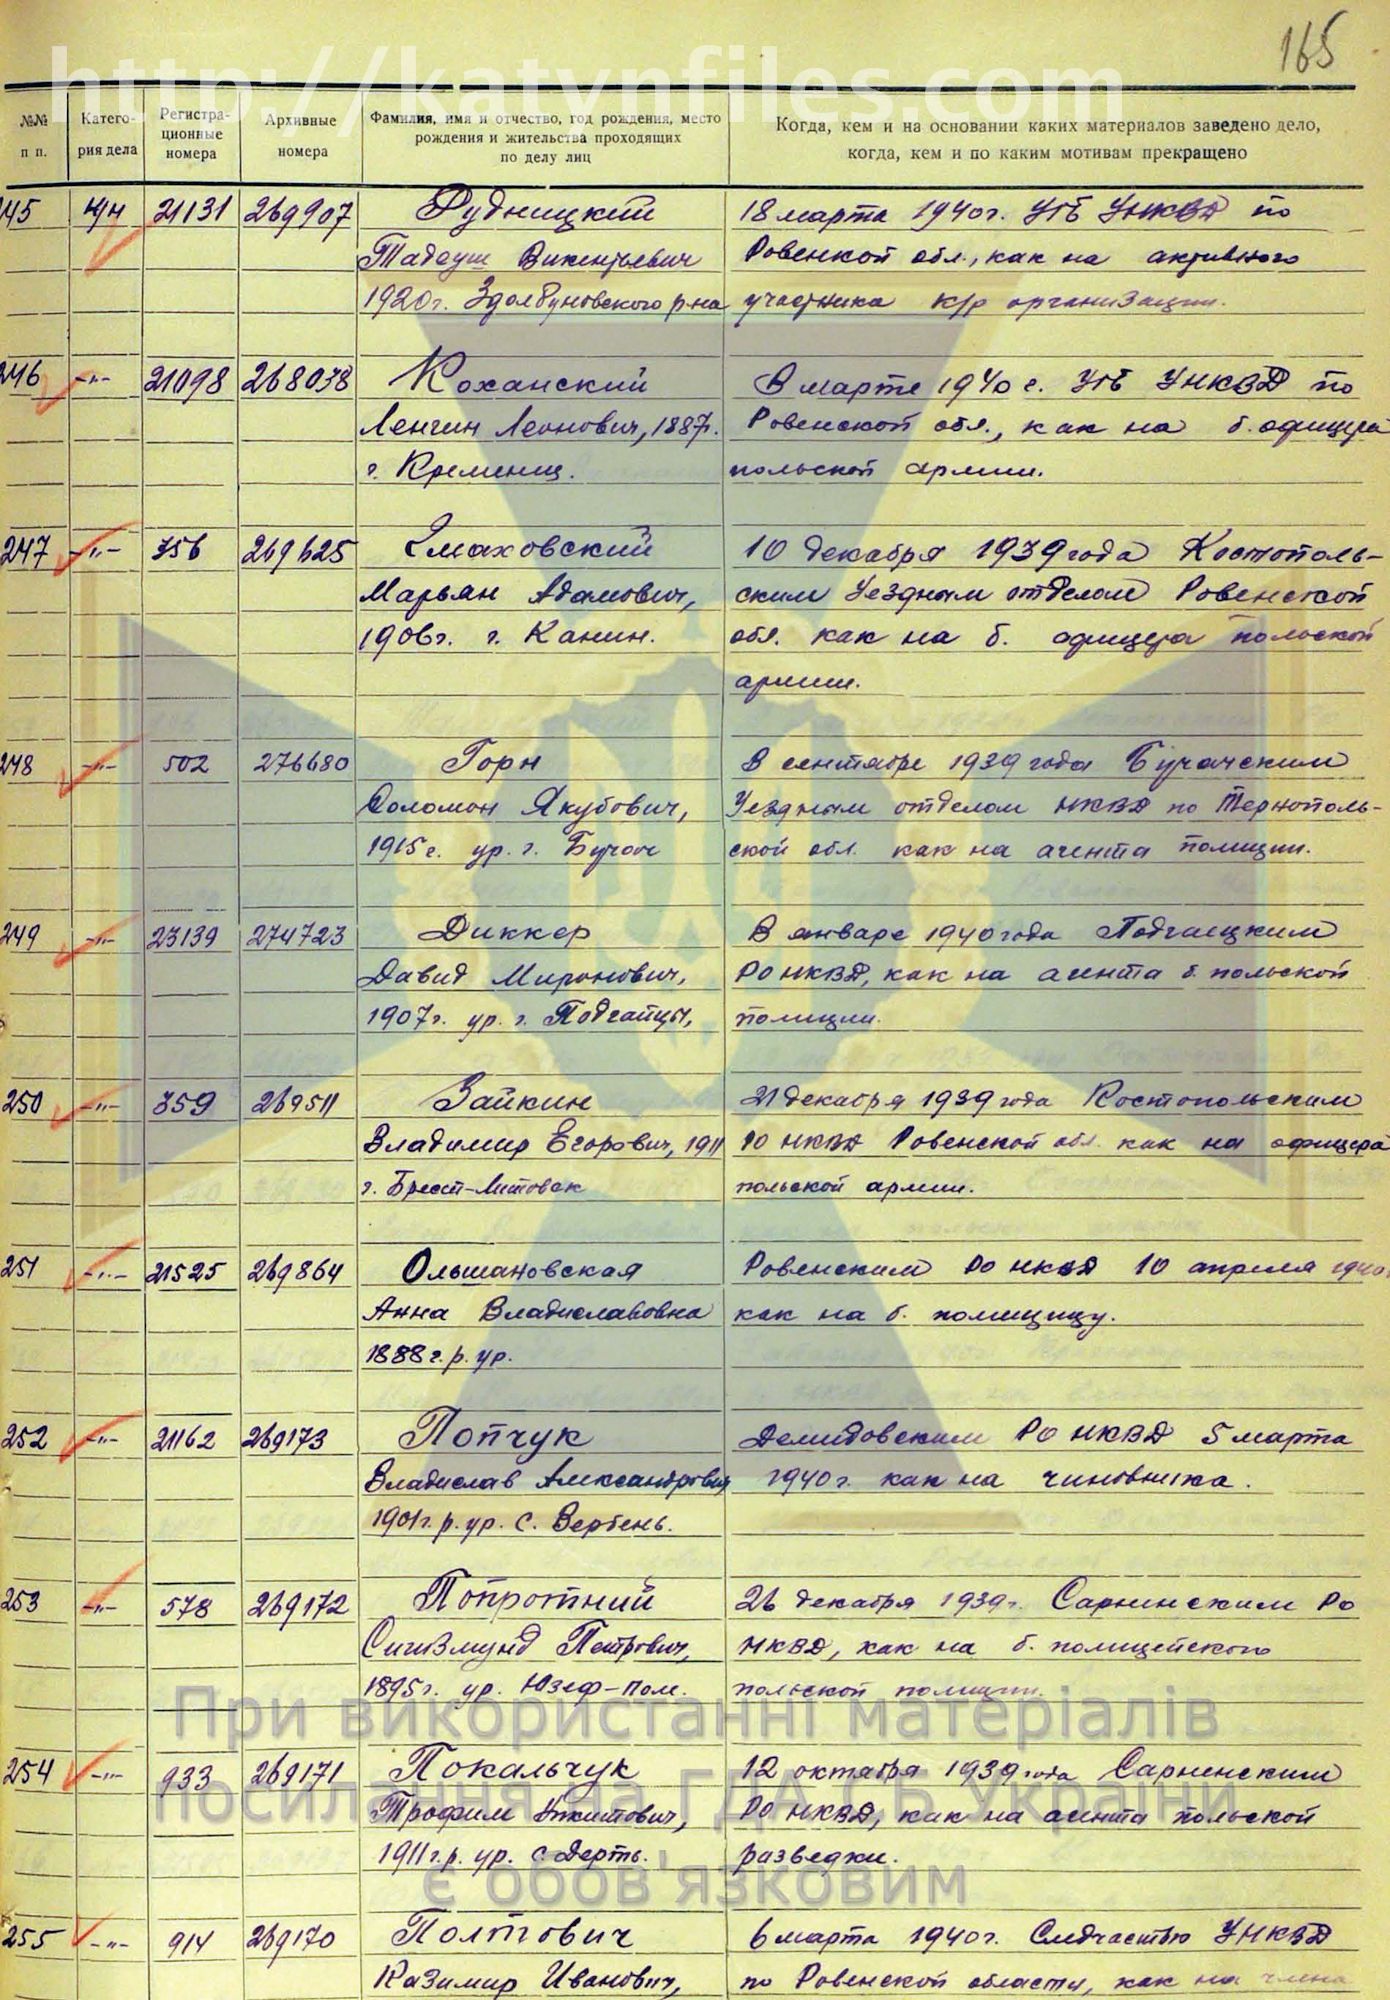 165
http://katynfiles.com
№№ п п.
Катего-
рия дела
Регистра-
ционные
номера
Архивные
номера
Фамилия, имя и отчество, год рождения, место
рождения и жительства проходящих
по делу лиц
Когда, кем и на основании каких материалов заведено дело,
когда, кем и по каким мотивам прекращено
245 21131 269907 Рудницкий 18 марта 1940 г. УГБ УНКВД по
Тадеуш Викентьевич Ровенской обл., как на активного
1920 г. Здолбуновского р-на участника к/р организации.
246 -"- 21098 268038 Коханский В марте 1940 г. УГБ УНКВД по
Леонович, 1887 г. Ровенской обл., как на б. офицера
г. Кременец. польской армии.
247 -"- 756 269625 Смаховский 10 декабря 1939 года Костополь-
Марьян Адамович, ским Уездным отделом Ровенской
1906 г. г. Канин. обл. как на б. офицера польской
армии.
248 -"- 502 276680 Горн В сентябре 1939 года Бучачским
Соломон Якубович, Уездным отделом НКВД по Тернополь-
1915 г. ур. г. Бучач ской обл. как на агента полиции.
249 -"- 23139 274723 Диккер В январе 1940 года Подгаецким
Давид Миронович, РО НКВД, как на агента б. польской
1907 г. ур. г. Подгайцы, полиции.
250 -"- 759 269511 Зайкин 21 декабря 1939 года Костопольским
Владимир Егорович, 1911 РО НКВД Ровенской обл. как на офицера
г. Брест-Литовск польской армии.
251 -"- 21525 269864 Ольшановская Ровенским РО НКВД 10 апреля 1940
Анна Владиславовна как на б. помещицу.
1888 г.р. ур.
252 -"- 21162 269173 Попчук Демидовским РО НКВД 5 марта
Владислав Александрович 1940 г. как на чиновника.
1901 г.р. ур. с. Вербень.
253 -"- 578 269172 Попротний 26 декабря 1939 г. Сарненским РО
Сигизмунд Петрович, НКВД, как на б. полицейского
1895 г. ур. Юзеф-Пом. польской полиции.
254 -"- 933 269171 Покальчук 12 октября 1939 года Сарненским
Трофим Никитович, РО НКВД, как на агента польской
1911 г.р. ур. с. Дерть. разведки.
255 -"- 914 269170 Полтович 6 марта 1940 г. Следчастью УНКВД
Казимир Иванович, по Ровенской области, как на члена
При використанні матеріалів
посилання на ГДА СБ України
є обов'язковим